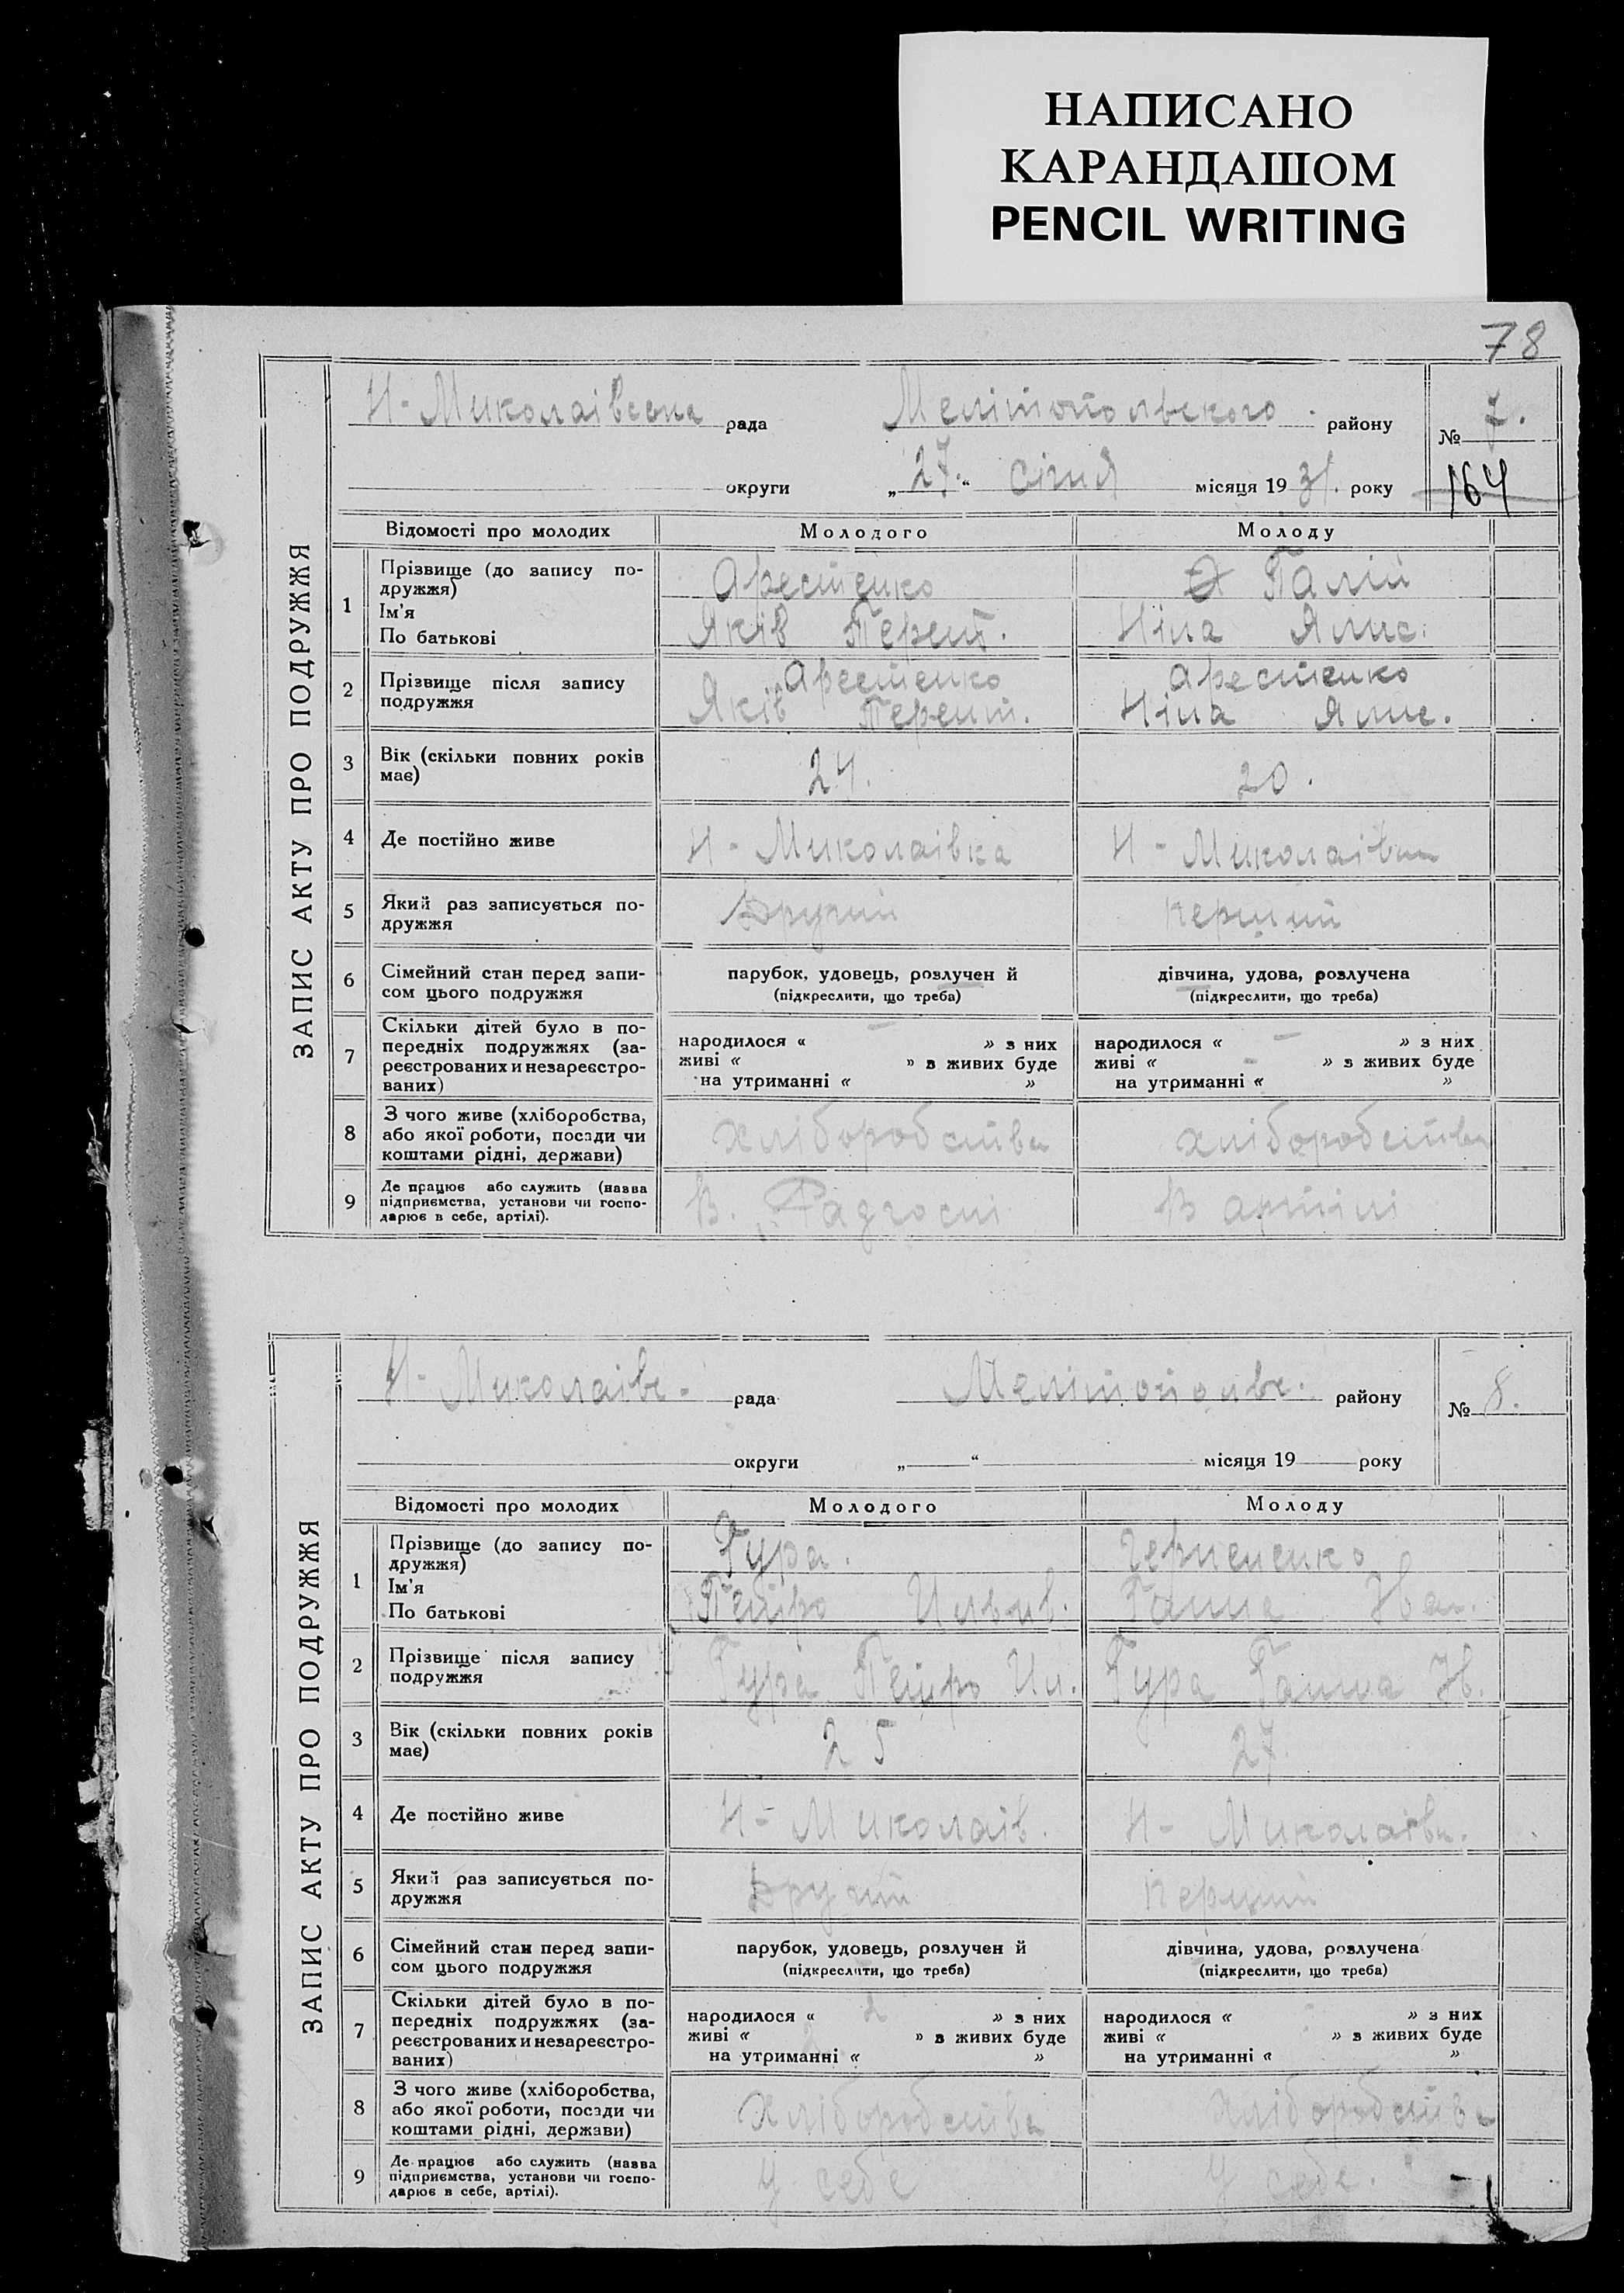 НАПИСАНО
КАРАНДАШОМ
PENCIL WRITING
78
ЗАПИС АКТУ ПРО ПОДРУЖЖЯ
Н-Миколаівська рада Мелітопольского району № 7.
округи „27.“ січня місяця 1931. року 164
Відомості про молодих Молодого Молоду
1 Прізвище (до запису по-
дружжя) Арестенко Палій
Ім'я
По батькові Яків Терент. Ніна
2 Прізвище після запису
подружжя
Арестенко Арестенко
Яків Терент. Ніна
3 Вік (скільки повних років
має) 24. 20.
4 Де постійно живе Н-Миколаівка Н-Миколаівка
5 Який раз записується по-
дружжя Другий перший
6 Сімейний стан перед запи-
сом цього подружжя
парубок, удовець, розлучен й дівчина, удова, розлучена
(підкреслити, що треба) (підкреслити, що треба)
7 Скільки дітей було в по-
передніх подружжях (за-
реєстрованих и незареєстро-
ваних)
народилося « » з них народилося « » з них
живі « » в живих буде живі « » з живих буде
на утриманні « » на утриманні « »
8 З чого живе (хліборобства,
або якої роботи, посади чи
коштами рідні, держави) хліборобства хліборобства
9 Де працює або служить (назва
підприємства, установи чи госпо-
дарює в себе, артілі). В. Радгоспі В артілі
ЗАПИС АКТУ ПРО ПОДРУЖЖЯ
Н-Миколаівс- рада Мелітопольс. району № 8.
округи „ “ місяця 19 року
Відомості про молодих Молодого Молоду
1 Прізвище (до запису по-
дружжя) Гура.
Ім'я
По батькові Петро Ганна Ив
2 Прізвище після запису
подружжя Гура Петро Ил. Гура Ганна Ив.
3 Вік (скільки повних років
має) 25 27
4 Де постійно живе Н-Миколаів. Н-Миколаівк.
5 Який раз записується по-
дружжя Другий Перший
6 Сімейний стан перед запи-
сом цього подружжя
парубок, удовець, розлучен й дівчина, удова, розлучена
(підкреслити, що треба) (підкреслити, що треба)
7 Скільки дітей було в по-
передніх подружжях (за-
реєстрованих и незареєстро-
ваних)
народилося « 2 » з них народилося « » з них
живі « » в живих буде живі « » з живих буде
на утриманні « » на утриманні « »
8 З чого живе (хліборобства,
або якої роботи, посади чи
коштами рідні, держави) Хліборобства Хліборобства
9 Де працює або служить (назва
підприємства, установи чи госпо-
дарює в себе, артілі). У себе У себе.